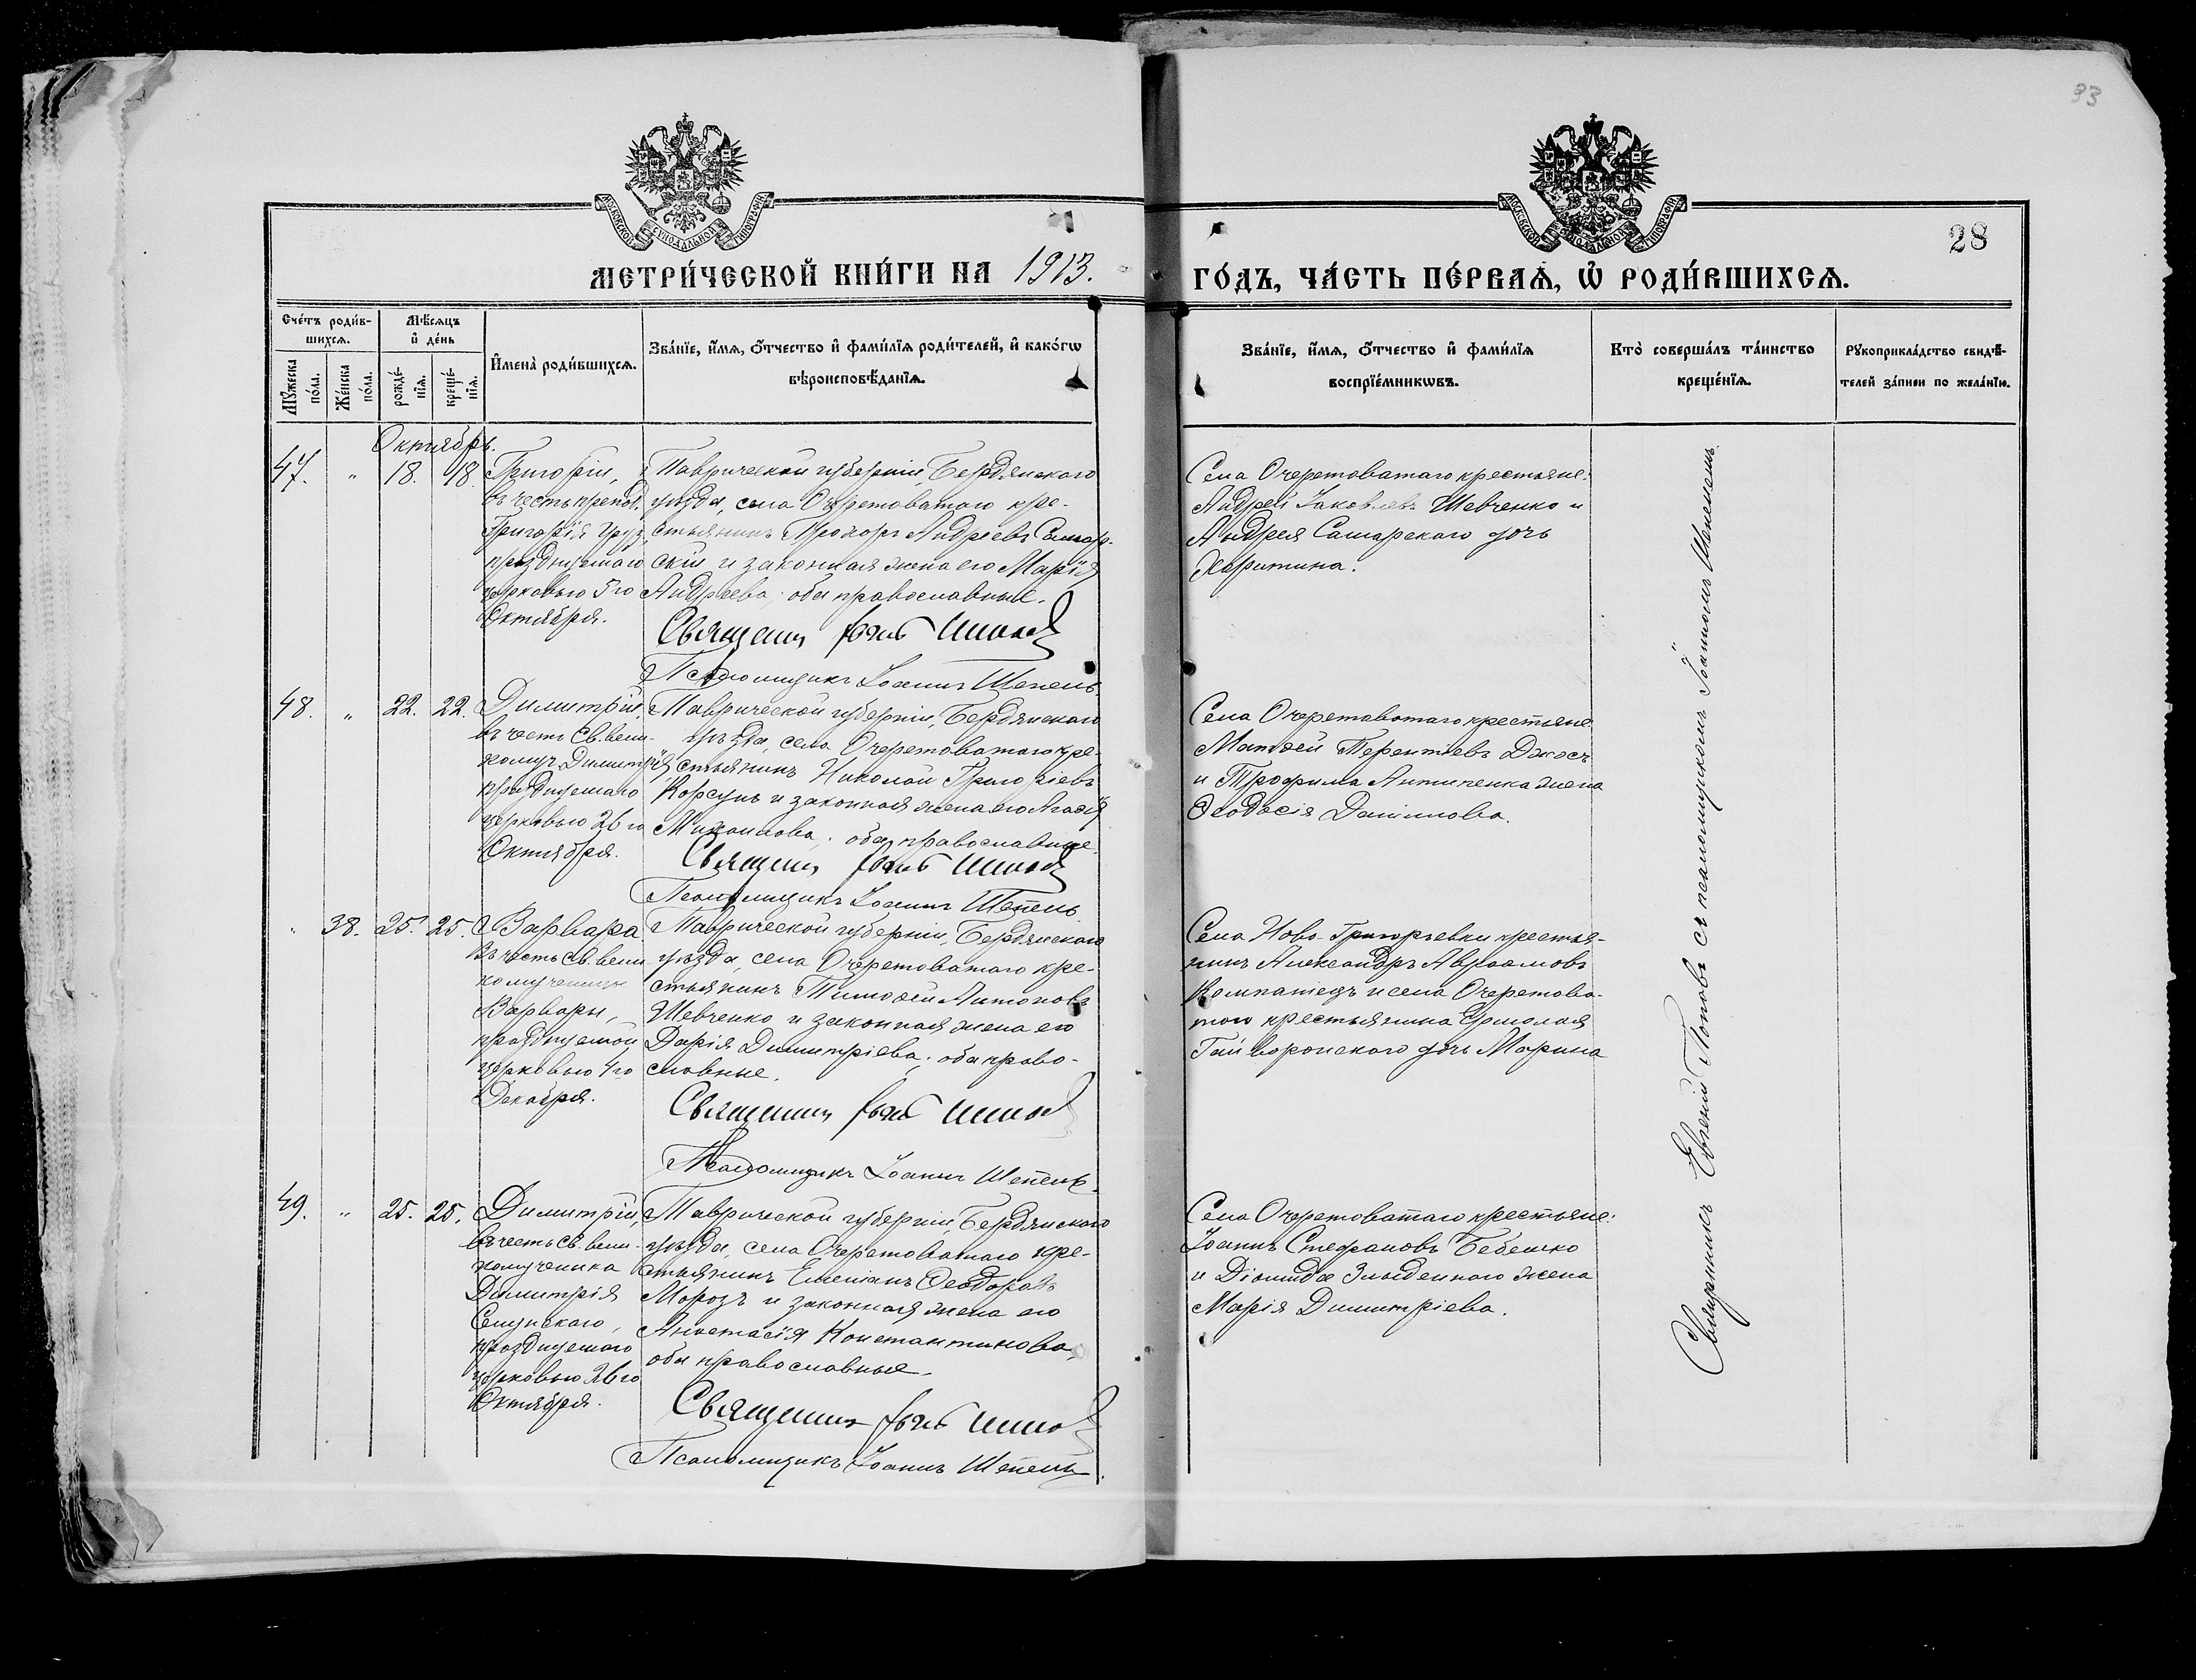 93
МОСКОВСКОЙ СѴНОДАЛЬНОЙ ТИПОГРАФІИ
МОСКОВСКОЙ СѴНОДАЛЬНОЙ ТИПОГРАФІИ
28
МЕТРИ́ЧЕСКОЙ КНИ́ГИ НА 1913. ГО́ДЪ, ЧА́СТЬ ПЕ́РВАѦ, Ѽ РОДИ́ВШИХСѦ.
Сче́тъ роди́в-
шихсѧ.
Мꙋ́жеска
по́ла.
Же́нска
по́ла.
Мѣ́сѧцъ
и҆ де́нь
рожде́-
нїѧ.
креще́-
нїѧ.
И҆мена̀ роди́вшихсѧ.
Зва́нїе, и҆́мѧ, ѻ҆́тчество и҆ фами́лїѧ роди́телей, и҆ како́гѡ
вѣроисповѣ́данїѧ.
Зва́нїе, и҆́мѧ, ѻ҆́тчество и҆ фами́лїѧ
воспрїе́мникѡвъ.
Кто̀ соверша́лъ та́инство
креще́нїѧ.
Рꙋкоприкла́дство свидѣ́-
телей за́писи по жела́нїю.
Октябрь.
47. " 18. 18.
Григорій,
въ честь препод.
Григорія
празднуемаго
церковью 5го
Октября.
Таврической губерніи, Бердянскаго
уѣзда, села Очеретоватаго кре-
стьянинъ Прохоръ Андреевъ Самар-
скій и законная жена его Марія
Андреева, оба православные.
Священн
Псаломщикъ Іоаннъ Шепель.
Села Очеретоватаго крестьяне:
Андрей Іаковлевъ Шевченко и
Андрея Самарскаго дочь
Харитина.
48. " 22. 22.
Димитрій,
въ честь Св. вели-
комуч. Димитрія
празднуемаго
церковью 26го
Октября.
Таврической губерніи, Бердянскаго
уѣзда, села Очеретоватаго кре-
стьянинъ Николай Григоріевъ
Корсунь и законная жена его Агафія
Михаилова, оба православные.
Священн
Псаломщикъ Іоаннъ Шепель.
Села Очеретоватаго крестьяне:
Матѳей Терентіевъ Джосъ
и Трофима Антипенка жена
Ѳеодосія Даніилова.
" 38. 25. 25.
Варвара
въ честь Св. вели
комученицы
Варвары,
празднуемой
церковью 4го
Декабря.
Таврической губерніи, Бердянскаго
уѣзда, села Очеретоватаго кре-
стьянинъ Тимоѳей Антоновъ
Шевченко и законная жена его
Дарія Димитріева, оба право-
славные.
Священн
Псаломщикъ Іоаннъ Шепель.
Села Ново-Григорьевки крестья-
нинъ Александръ Авраамовъ
Компаніецъ и села Очеретова-
таго крестьянина Ермолая
Гайворонскаго дочь Марина
49. " 25. 25.
Димитрій,
въ честь Св. вели-
комученика
Димитрія
Солунскаго,
празднуемаго
церковью 26го
Октября.
Таврической губерніи, Бердянскаго
уѣзда, села Очеретоватаго кре-
стьянинъ Емеліанъ Ѳеодоровъ
Морозъ и законная жена его
Анастасія Константинова,
оба православные.
Священн
Псаломщикъ Іоаннъ Шепель.
Села Очеретоватаго крестьяне:
Іоаннъ Стефановъ Бебешко
и Діомида жена
Марія Димитріева.
Священникъ Евгеній Поповъ съ псаломщикомъ Іоанномъ Шепелемъ.